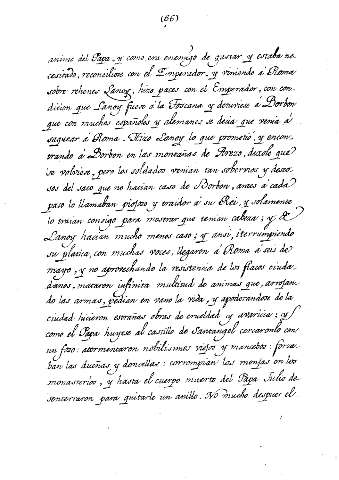 (66)
anime del Papa, y como era enemigo de gastar y estaba ne-
cesitado, reconciliose con el Emperador, y viniendo á Roma
sobre rehenes Lanoy, hizo paces con el Emperador, con con-
dicion que Lanoy fuese á la Toscana y detuviese á Borbon
que con muchos españoles y alemanes se decia que venia á
saquear á Roma. Hizo Lanoy lo que prometió, y encon-
trando á Borbon en las montañas de Arezo, dixole que
se volviese, pero los soldados venian tan soberbios y deseo-
sos del saco que no hacian caso de Borbon, antes á cada
paso lo llamaban piojoso y traidor á su Rei, y solamente
lo traian consigo para mostrar que tenian cabeza; y de
Lanoy hacian mucho menos caso; y ansi, iterrumpiendo
su platica, con muchas voces, llegaron á Roma á seis de
mayo, y no aprovechando la resistencia de los flacos ciuda-
danos, mataron infinita multitud de animas que, arrojan-
do las armas, pedian en vano la vida, y apoderandose de la
ciudad hicieron estrañas obras de crueldad y avaricia; y
como el Papa huyese al castillo de Santangel cercaronlo con
un foso: atormentaron nobilisimos viejos y mancebos: forza-
ban las dueñas y doncellas: corrompian las monjas en los
monasterios, y hasta el cuerpo muerto del Papa Julio de-
senterraron para quitarle un anillo. No mucho despues el